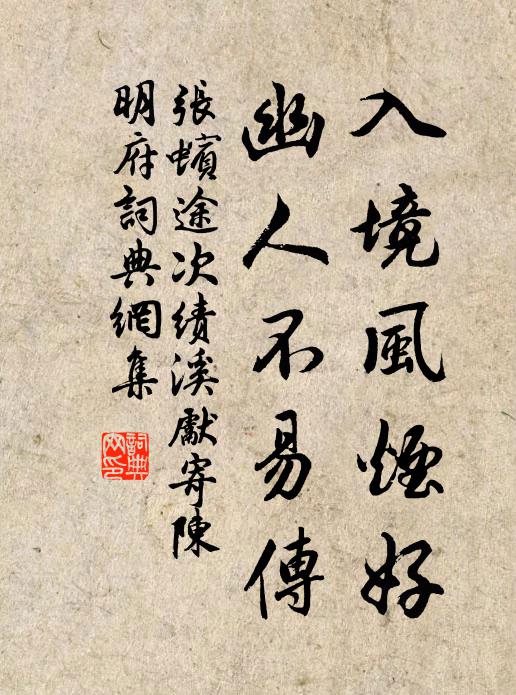 入境風煙好
幽人不易傳
張蠙途次績溪獻寄陳
明府詞典網集
詞典
网印